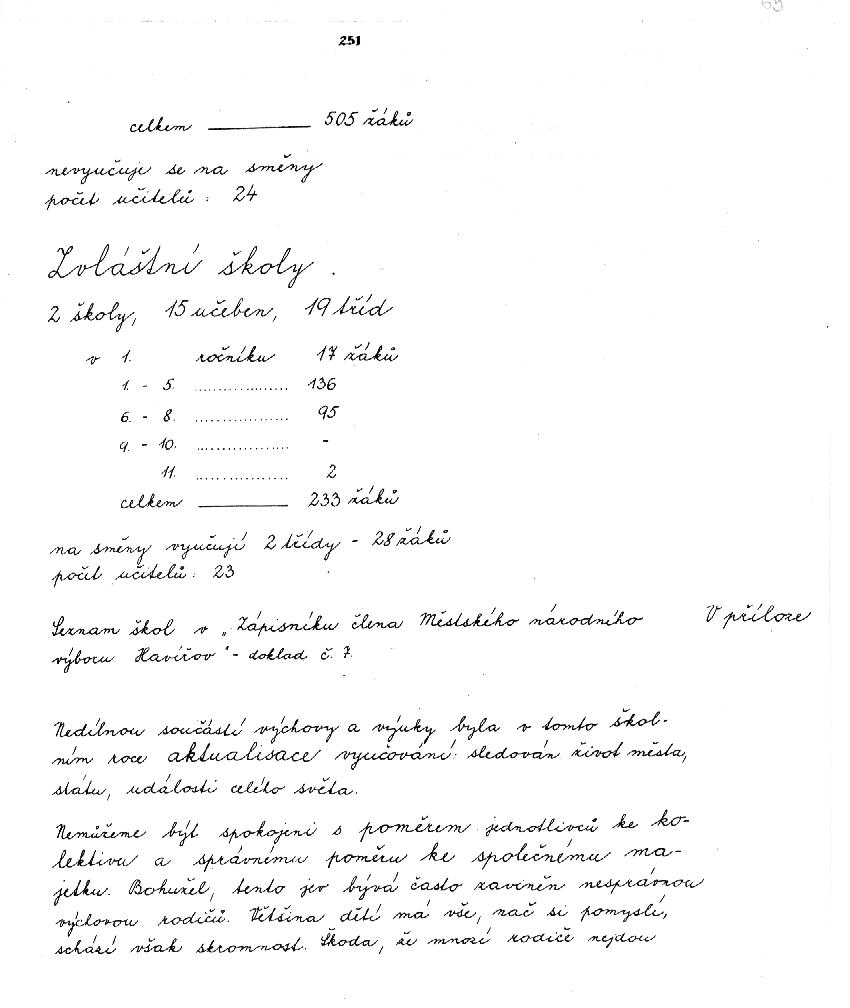 69
251
celkem ______ 505 žáků
nevyučuje se na směny
počet učitelů : 24
Zvláštní školy .
2 školy, 15 učeben, 19 tříd
v 1. ročníku 17 žáků
1. - 5. .................. 136
6. - 8. .................. 95
9. - 10. .................. -
11. .................. 2
celkem ______ 233 žáků
na směny vyučují 2 třídy - 28 žáků
počet učitelů : 23
Seznam škol v „Zápisníku člena Městského národního V příloze
výboru Havířov" - doklad č. 7.
Nedílnou součástí výchovy a výuky byla v tomto škol-
ním roce aktualisace vyučování: sledován život města,
státu, události celého světa.
Nemůžeme být spokojeni s poměrem jednotlivců ke ko-
lektivu a správnému poměru ke společnému ma-
jetku. Bohužel, tento jev bývá často zaviněn nesprávnou
výchovou rodičů. Většina dětí má vše, nač si pomyslí,
schází však skromnost. Škoda, že mnozí rodiče nejdou